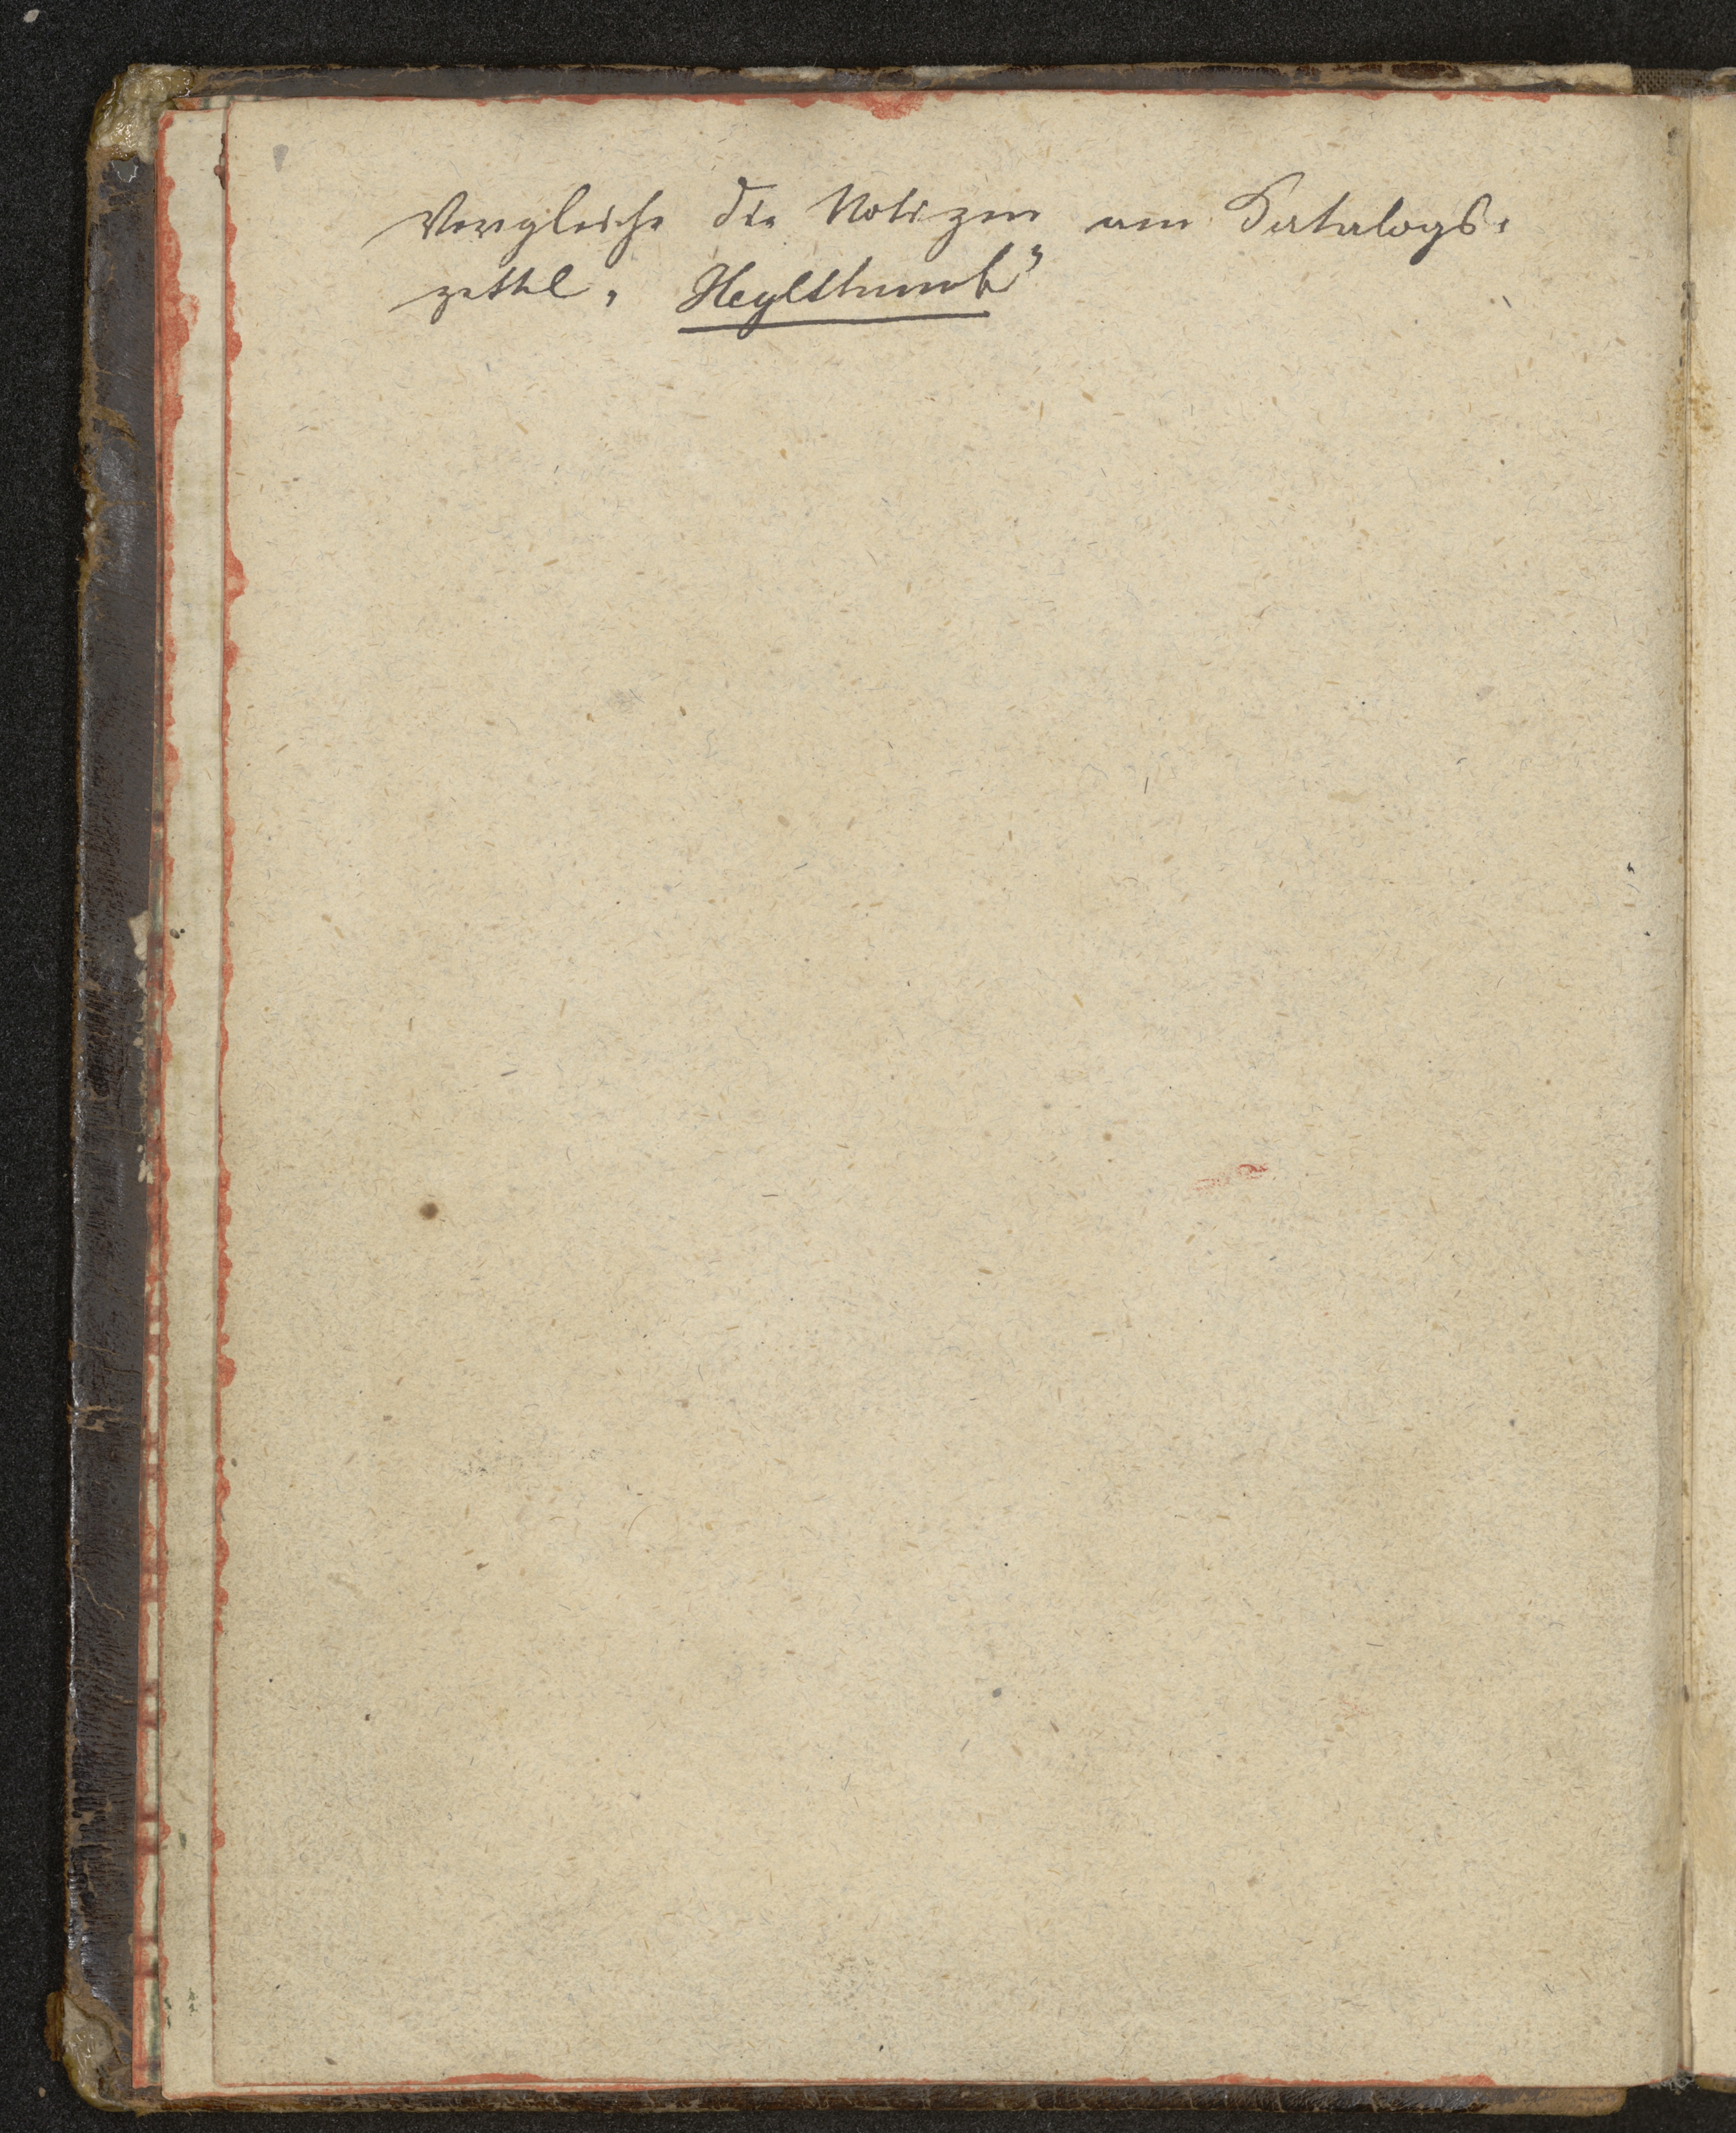 Vergleiche die Notizen am Katalogs-
zettel „Heylthumb"